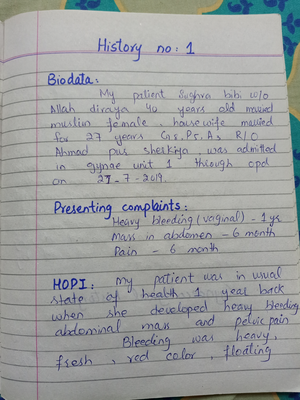 History no: 1
Biodata:
My patient Sughra bibi w/o
Allah diraya 40 years old married
muslim female, housewife married
for 27 years G8, P5, A3 R/O
Ahmad pur sherkiya was admitted
in gynae unit 1 through opd
on 27-7-2019.
Presenting complaints:
Heavy bleeding (vaginal) - 1 yr
Mass in abdomen - 6 month
Pain - 6 month
HOPI: My patient was in usual
state of health 1 year back
when she developed heavy bleeding
abdominal mass and pelvic pain
Bleeding was heavy,
fresh, red color, floating